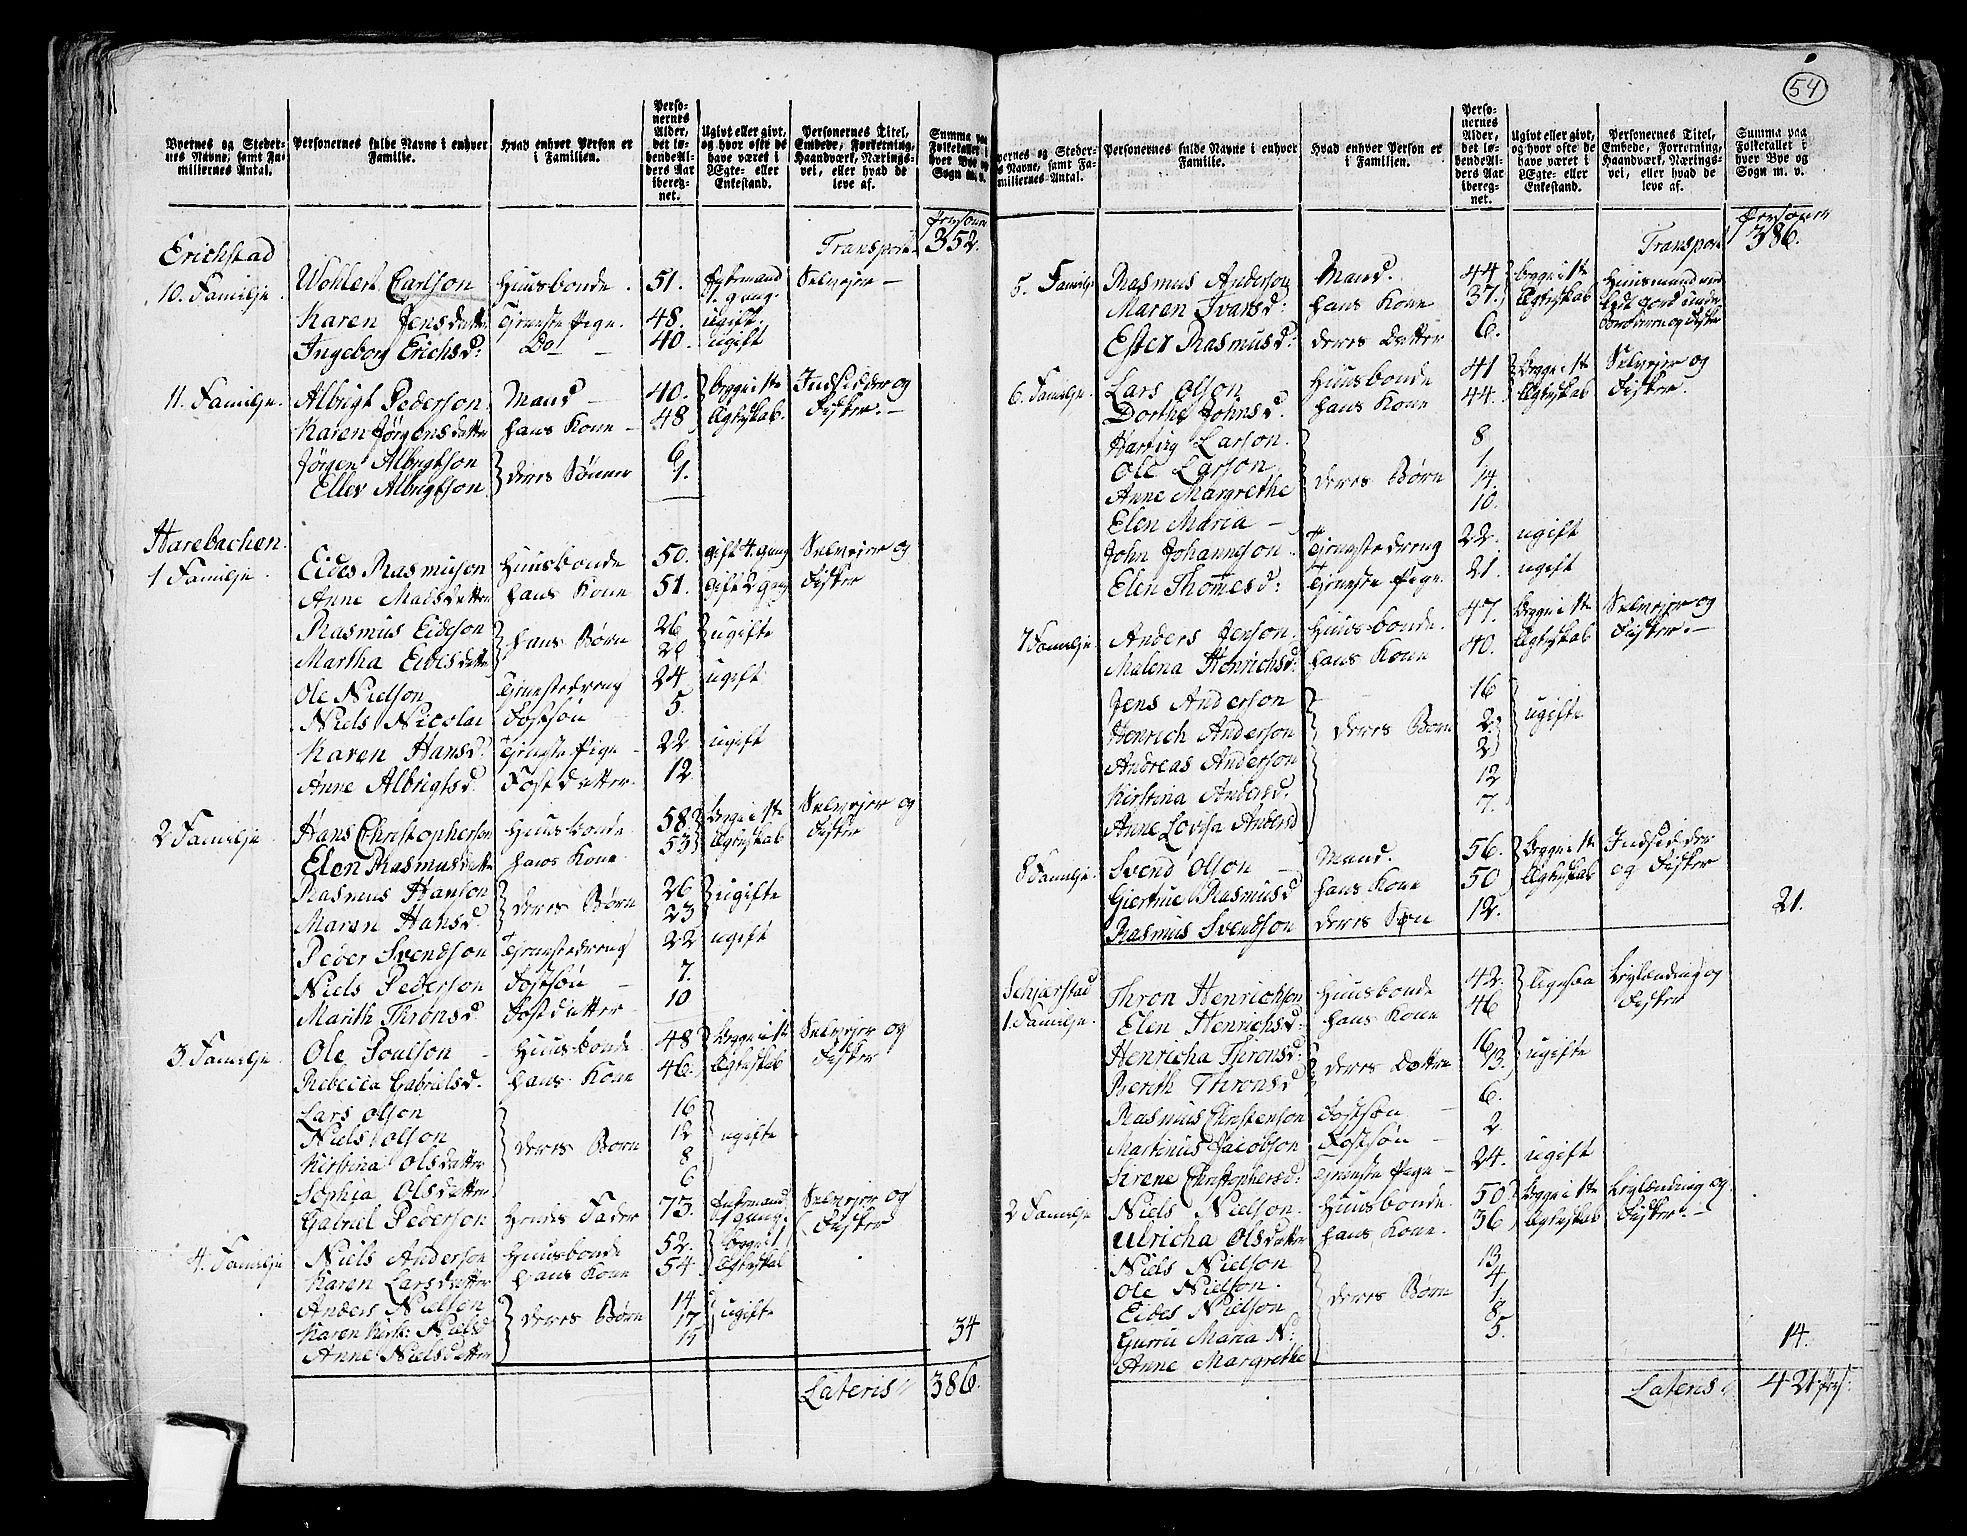 54
Byernes og Steder-
nes Navne, samt Fa-
miliernes Antal.
Personernes fulde Navne i enhver
Familie.
Hvad enhver Person er
i Familien.
Perso-
nernes
Alder,
det lø-
bende Al-
ders Aar
ibereg-
net.
Ugivt eller givt,
og hvor ofte de
have været i
Ægte- eller
Enkestand.
Personernes Titel,
Embede, Forretning,
Haandværk, Nærings-
vei, eller hvad de
leve af.
Summa paa
Folketallet i
hver Bye og
Sogn m. v.
Personer
Erichstad Transport 352.
10. Familje. Wohlert Carlson Huusbonde 51. Enkemand 1. gang. Selveyer
Karen Jensdatter Tjeneste Pige. 48. ugift.
Ingeborg Erichsd: Do 40. ugift
11. Familje. Albrigt Pederson Mand 40. begge i 1ste Indsidder og
Karen Jørgensdatter hans Kone 48 Ægteskab. Fisker.
Jørgen Albrigtson deres Sønner 6
Eller Albrigtson 1.
Harebachen.
1 Familje. Eides Rasmuson Huusbonde 50. gift 4. gang Selveyer og
Anne Madsdatter hans Kone 51. gift 2 gang Fisker
Rasmus Eideson hans Børn 26 ugifte
Martha Eidesdatter 20
Ole Nielson Tjenestedreng 24 ugift
Niels Nicolai Fostsøn 5.
Karen Hansd. Tjeneste Pige 22 ugift
Anne Albrigtsd. Fostdatter 12
2 Familje Hans Christopherson Huusbonde 58 begge i 1ste Selveyer og
Elen Rasmusdatter hans Kone 53 Ægteskab Fisker
Rasmus Hanson deres Børn 26 ugifte
Maren Hansd. 23
Peder Svendson Tjenestedreng 22 ugift
Niels Pederson Fostsøn 7.
Marith Thronsd. Fostdatter 10
3 Familje. Ole Poulson Huusbonde 48 begge i 1st Selveyer og
Rebecca Gabrielsd. hans Kone 46. Ægteskab Fisker
Lars Olson 16
Niels Olson deres Børn 12 ugifte
Kirstina Olsdatter 8
Sophia Olsdatter 6
Gabriel Pederson hendes Fader 73. Enkemand 1 gang. Selveyer og
4. Familje Niels Anderson Huusbonde 52. begge i 1 Fisker
Karen Larsdatter hans Kone 54 Ægteskab
Anders Nielson deres Børn 14 ugifte
Karen Kirst: Nielsd 17
Anne Nielsdatter 11 34
Lateris 386.
Byernes og Steder-
nes Navne, samt Fa-
miliernes Antal.
Personernes fulde Navne i enhver
Familie.
Hvad enhver Person er
i Familien.
Perso-
nernes
Alder,
det lø-
bende Al-
ders Aar
ibereg-
net.
Ugivt eller givt,
og hvor ofte de
have været i
Ægte- eller
Enkestand.
Personernes Titel,
Embede, Forretning,
Haandværk, Nærings-
vei, eller hvad de
leve af.
Summa paa
Folketallet i
hver Bye og
Sogn m. v.
Personer
Transport 386.
5. Familje Rasmus Anderson Mand. 44 begge i 1ste Huusmand
Maren Ivarsd: hans Kone 37. Ægteskab Jord
Ester Rasmusd: deres Datter 6. og Fisker
6. Familje. Lars Olson Huusbonde 41 begge i 1ste Selveyer og
Dorthe Johnsd. hans Kone 44. Ægteskab Fisker.
Hartvig Larson. 8
Ole Larson deres Børn 1
Anne Margrethe 14
Elen Maria 10.
John Johanneson Tjenestedreng 22. ugift
Elen Thomesd: Tjeneste Pige. 21. ugift
7 Familje. Anders Jenson. Huusbonde. 47. begge i 1ste Selveyer og
Malena Henrichsd: hans Kone 40. Ægteskab Fisker.
Jens Anderson 16
Henrich Anderson deres Børn 2. ugifte
Andreas Anderson 2
Kirstina Andersd. 12
Anne Lovisa Andersd 7.
8 Familje. Svend Olson Mand. 56. begge i 1ste Indsidder
Giertrue Rasmusd hans Kone 50 Ægteskab og Fisker
Rasmus Svendson deres Søn 12. 21.
Schjærstad Thron Henrichson Huusbonde 42. ligesaa Leylænding og
1. Familje. Elen Henrichsd: hans Kone 46 Fisker
Henricha Thronsd: deres Døttre 16 ugifte
Bereth Thronsd 13.
Rasmus Christenson Fostsøn 6.
Martinus Jacobson Fostsøn 2
Sirene Christophersd: Tjeneste Pige 24. ugift
2 Familje Niels Nielson. Huusbonde. 50 begge i 1ste Leylænding og
Ulricha Olsdatter hans Kone. 36 Ægteskab Fisker.
Niels Nielson 13
Ole Nielson. deres Børn 4
Eides Nielson 1
Gurru Maria N: 8
Anne Margrethe 5. 14.
Lateris 421 pers: